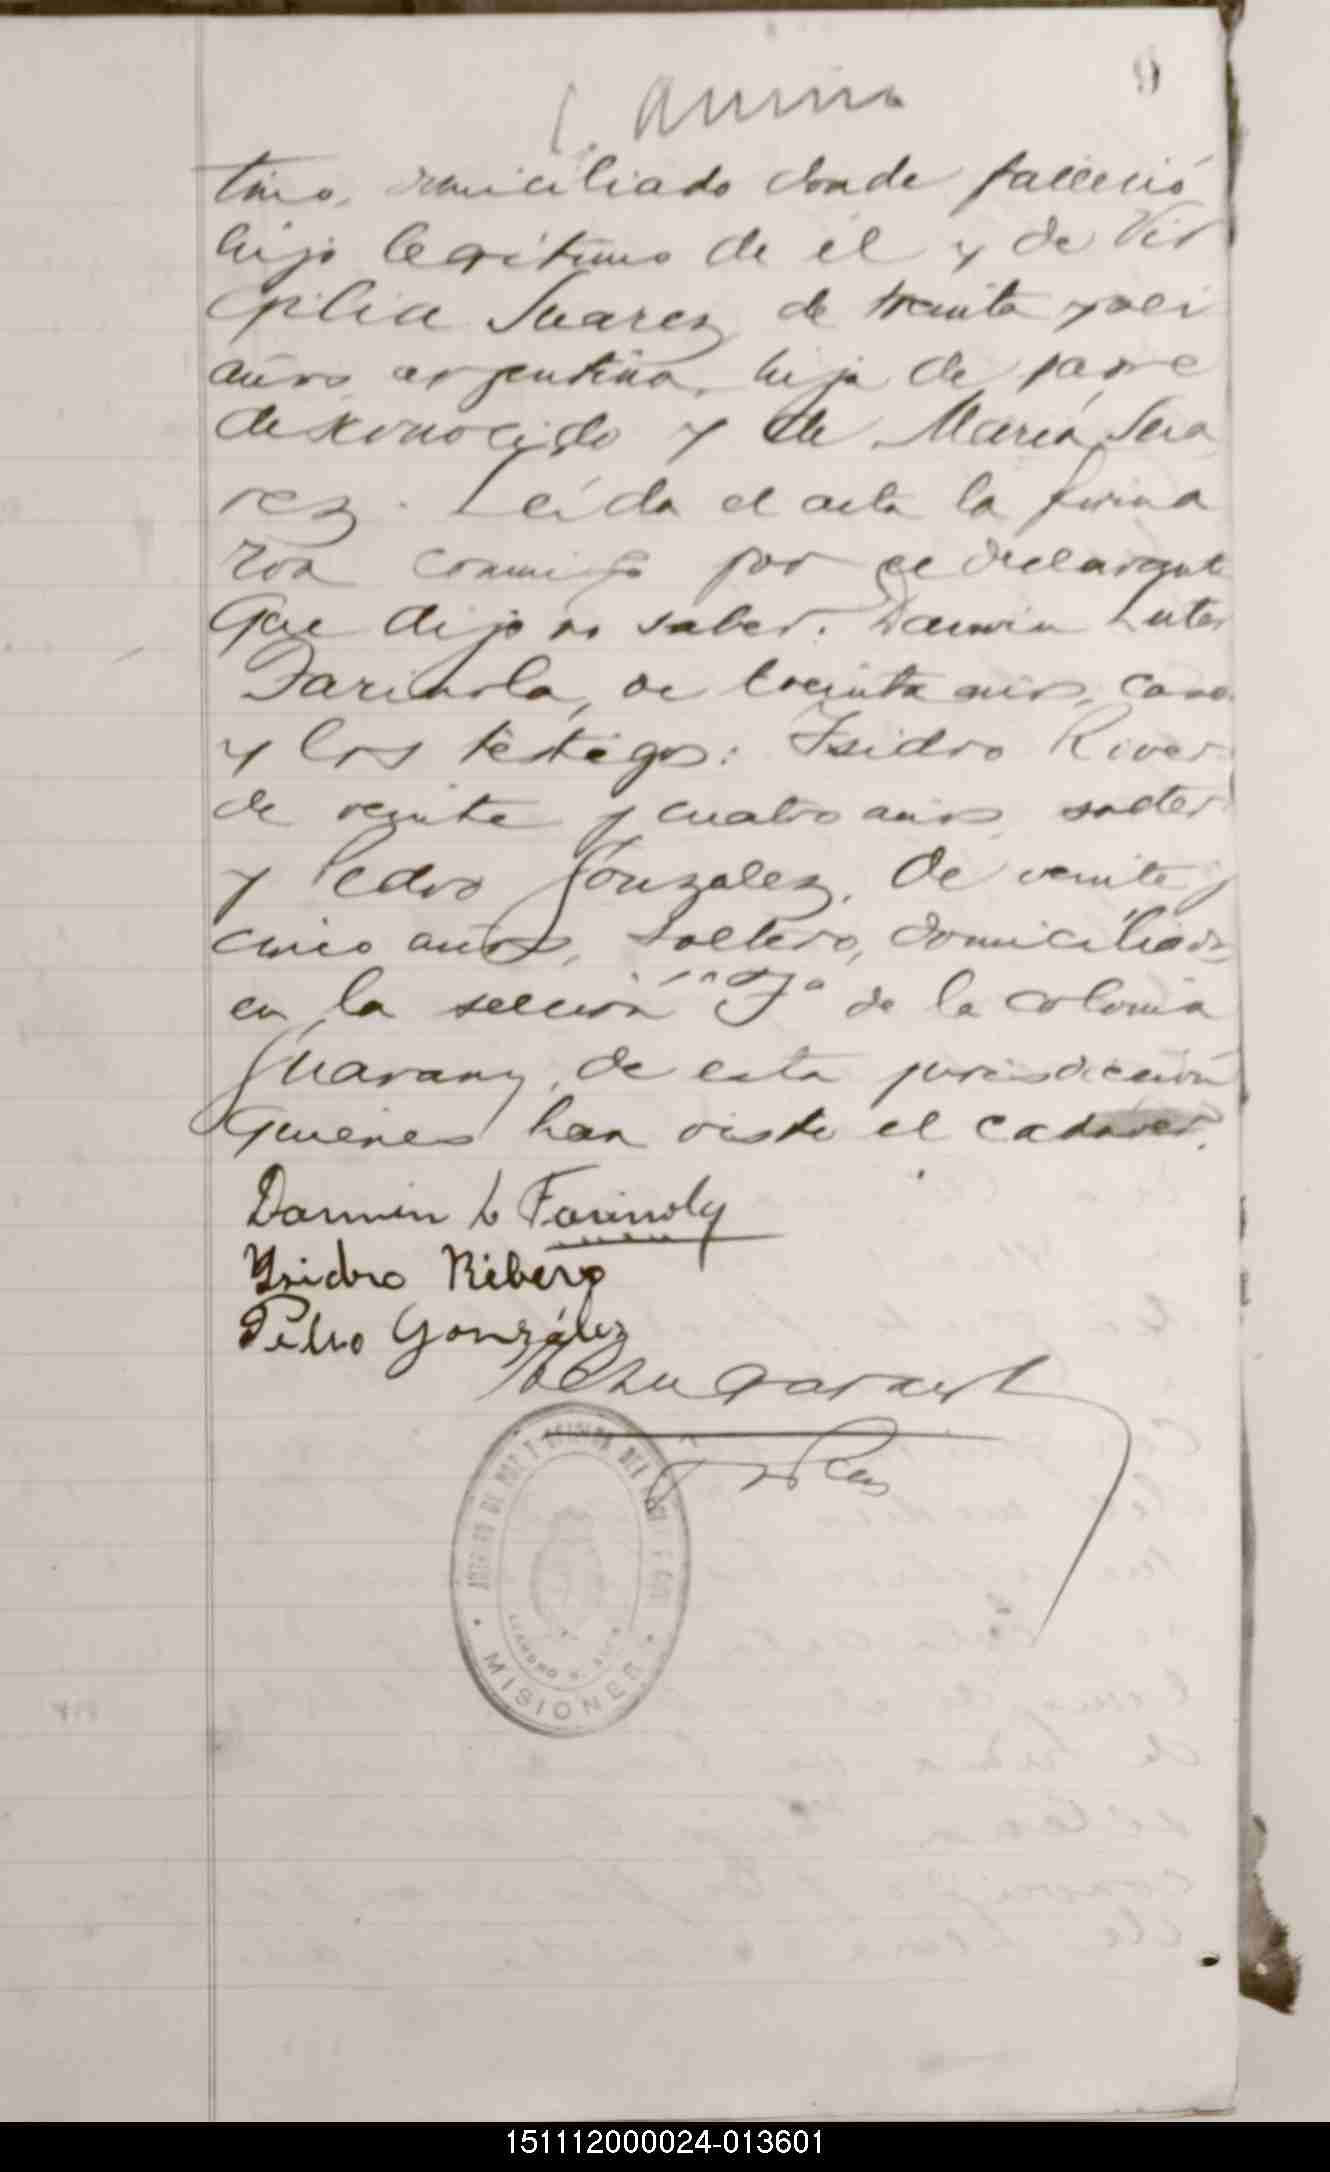 9
tino, domiciliado donde falleció
hijo legitimo de él y de Vir
gilia Suarez, de treinta y seis
años, argentina, hija de padre
desconocido y de María Sua
rez. Leída el acta la firma
ron conmigo por el declarante
que dijo no saber. Darwin Luter
Farinola, de treinta años, casa
y los testigos: Isidro River
de veinte y cuatro años, solter
y Pedro Gonzalez, de veinte y
cinco años, soltero, domiciliados
en la sección "F" de la colonia
Guarany, de esta jurisdicción
quienes han visto el cadaver.
Darwin L Farinoly
Ysidro Ribero
Pedro González
MISIONES
151112000024-013601